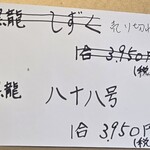 黒龍 しずく 売り切れ
1合 3,950円
(税
黒龍 八十八号
1合 3,950円
(税